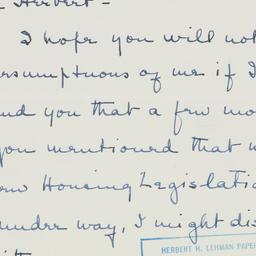 Herbert -
I hope you will not
resumptuous of me if I
nd you that a few mo
you mentioned that w
ew Housing Legislatio
under way, I might dis
it
HERBERT H. LEHMAN PAPE